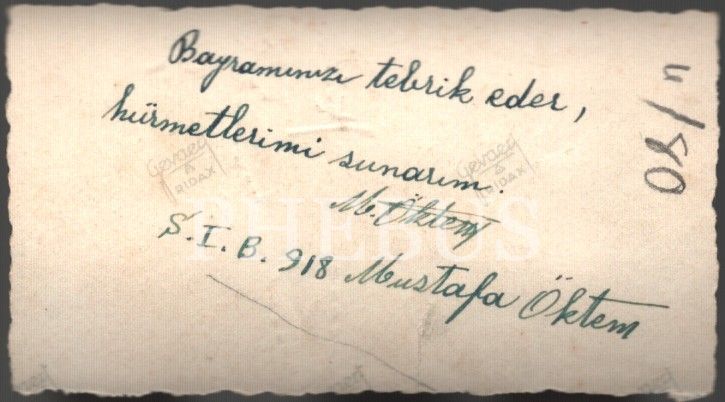 Bayramınızı tebrik eder,
hürmetlerimi sunarım.
M. Öktem
S.I.B. 918 Mustafa Öktem
4/80
Gevaert
RIDAX
Gevaert
RIDAX
PHEBUS